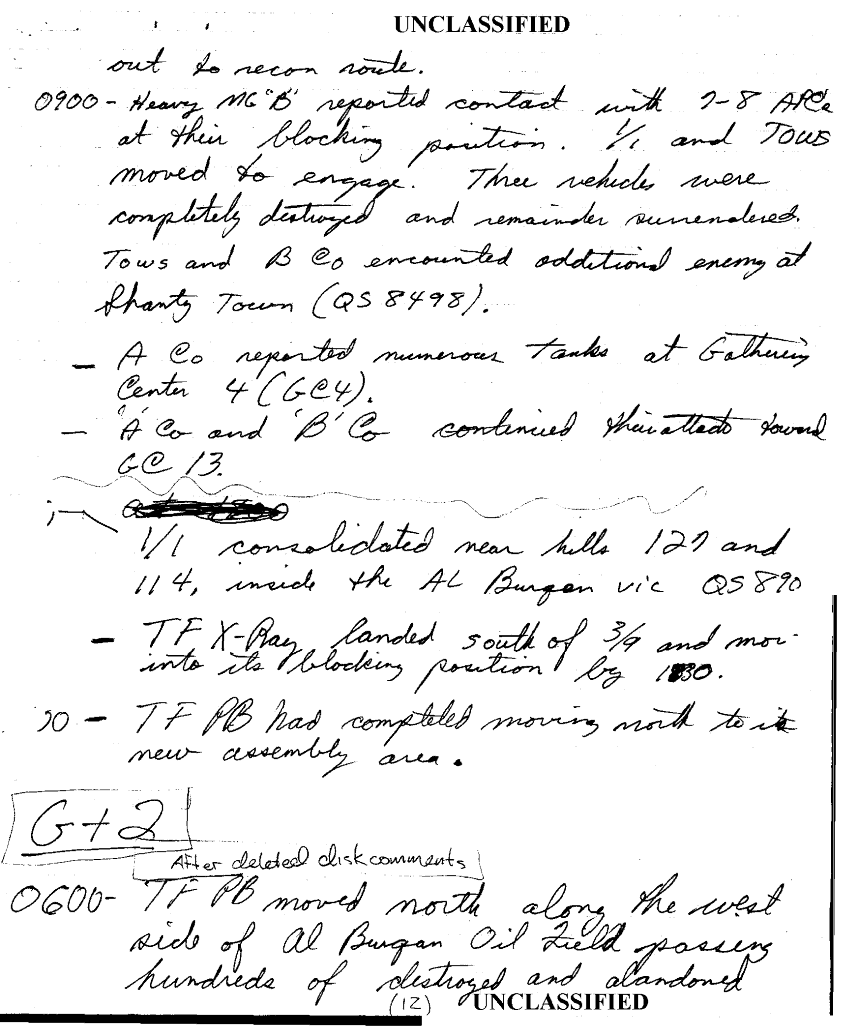 UNCLASSIFIED
out to recon route.
0900 - Heavy MG "B" reported contact with 7-8 APCs
at their blocking position. 1/1 and TOWS
moved to engage. Three vehicles were
completely destroyed and remainder surrendered.
Tows and B Co encounted additional enemy at
Shanty Town (QS 8498).
- A Co reported numerous Tanks at Gathering
Center 4 (GC4).
- 'A' Co and 'B' Co continued their attack toward
GC 13.
1/1 consolidated near hills 127 and
114, inside the AL Burqan vic QS 890
- TF X-Ray landed south of 3/9 and mov
into its blocking position by 1830.
- TF PB had completed moving north to its
new assembly area.
G+2
After deleted disk comments
0600- TF PB moved north along the west
side of Al Burqan Oil Field passing
hundreds of destroyed and abandoned
(12) UNCLASSIFIED